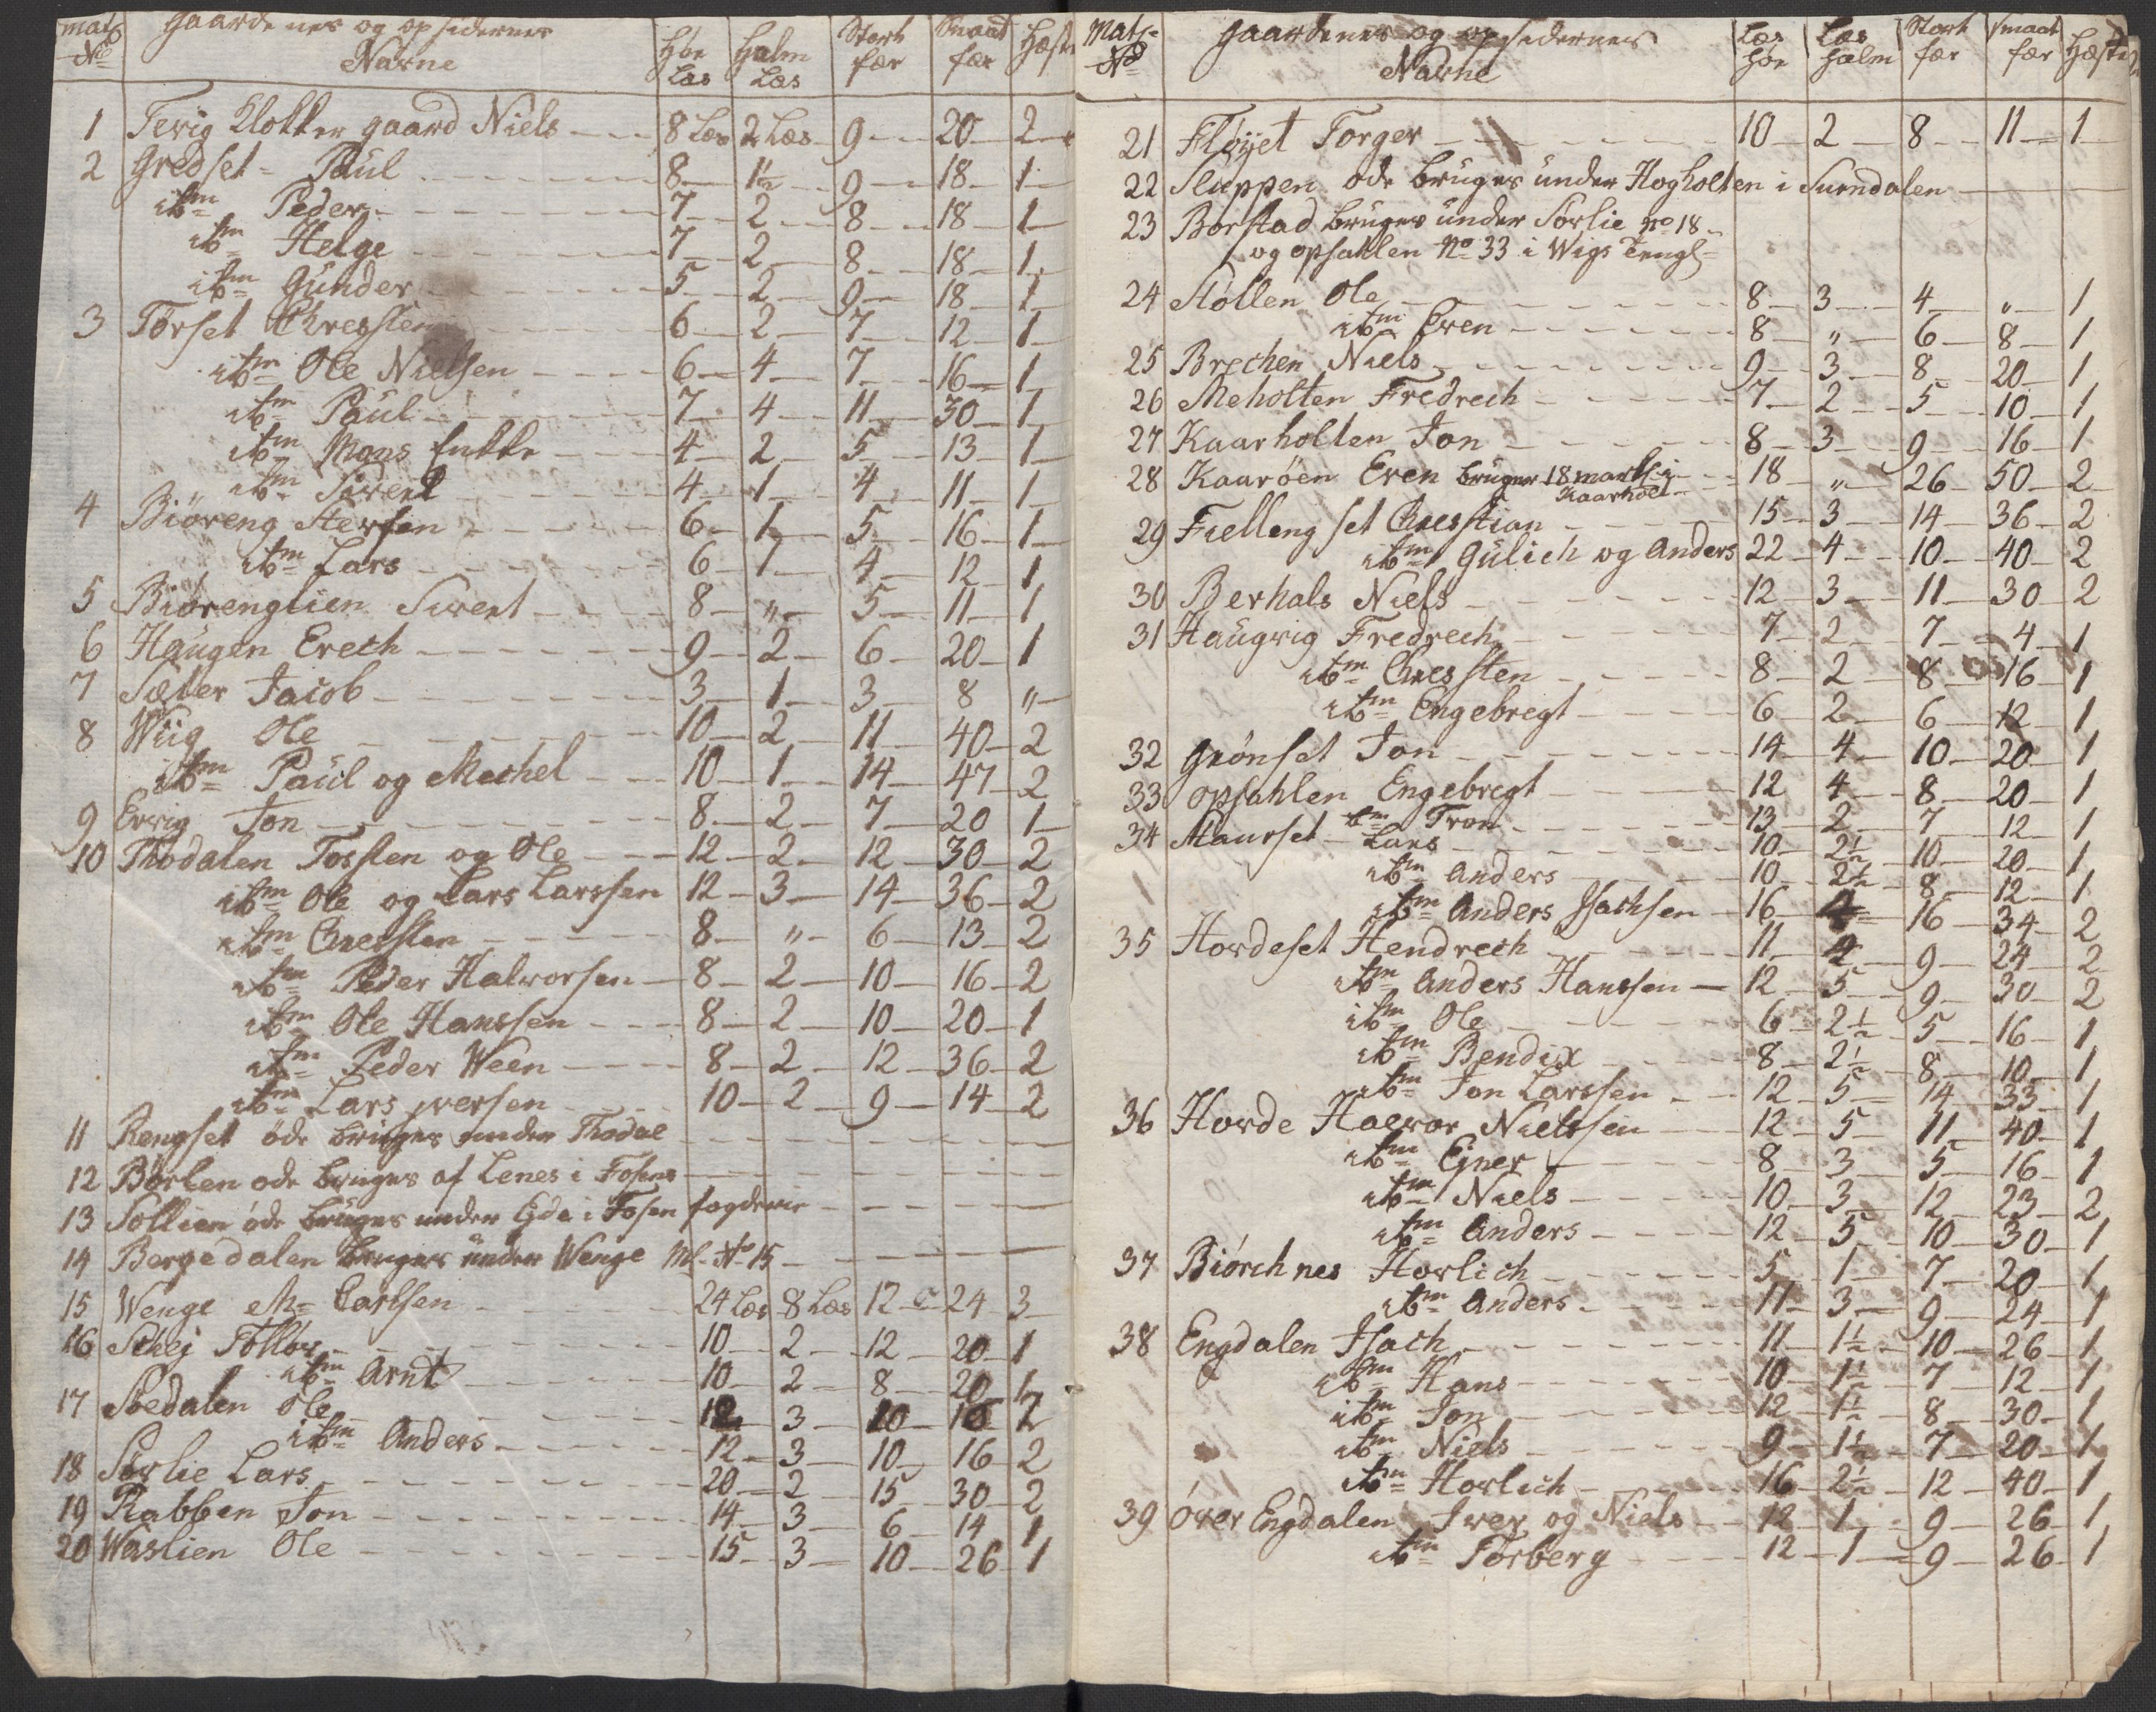 Mats No Gaardenes og opsidernes Nafne Høe Læs Halm Læs Stort fæe Smaat fæe Hæste
1 Terig Klokker gaard Niels 8 Læs 2 Læs 9 20 2
2 Gredset Paul 8 1½ 9 18 1
itm Peder 7 2 8 18 1
itm Helge 7 2 8 18 1
itm Gunder 5 2 9 18 1
3 Torset Chresten 6 2 7 12 1
itm Ole Nielsen 6 4 7 16 1
itm Paul 7 4 11 30 1
itm Mons Enkke 4 2 5 13 1
itm Sivert 4 1 4 11 1
4 Biøreng Stersen 6 1 5 16 1
itm Lars 6 1 4 12 1
5 Biørenglien Sivert 8 „ 5 11 1
6 Haugen Erech 9 2 6 20 1
7 Sæter Jacob 3 1 3 8 „
8 Wiig Ole 10 2 11 40 2
itm Paul og Mechel 10 1 14 47 2
9 Ervig Jon 8 2 7 20 1
10 Thodalen Tosten og Ole 12 2 12 30 2
itm Ole og Lars Larssen 12 3 14 36 2
itm Chresten 8 „ 6 13 2
itm Peder Halvorsen 8 2 10 16 2
itm Ole Hanssen 8 2 10 20 1
itm Peder Ween 8 2 12 36 2
itm Lars Iversen 10 2 9 14 2
11 Rengset öde bruges under Thodal
12 Børlen ode bruges af Lenes i Fosens
13 Sollien öde bruges under Eide i Fosen fogderie
14 Bergedalen bruges under Wenge Ml. No 15
15 Wenge Mr Carlsen 24 Læs 8 Læs 12 24 3
16 Schej Follor 10 2 12 20 1
itm Arnt 10 2 8 20 1
17 Soedalen Ole 12 3 10 16 2
itm Anders 12 3 10 16 2
18 Sørlie Lars 20 2 15 30 2
19 Rabben Jon 14 3 6 14 1
20 Waslien Ole 15 3 10 26 1
Mats No Gaardenes og opsidernes Nafne Læs høe Læs halm Stort fæe smaat fæe Hæste
21 Fløyet Torger 10 2 8 11 1
22 Sluppen ode bruges under Hogholten i Surndalen
23 Borstad bruges under Sorlie No 18
og opsahlen No 33 i Wigs Tengl
24 Støllen Ole 8 3 4 „ 1
itm Even 8 „ 6 8 1
25 Brechen Niels 9 3 8 20 1
26 Meholten Fredrech 7 2 5 10 1
27 Kaarholten Jon 8 3 9 16 1
28 Kaarøen Even bruger 18 markl i Kaarhoel 18 „ 26 50 2
29 Fiellengset Chrestian 15 3 14 36 2
itm Gulich og Anders 22 4 10 40 2
30 Berhals Niels 12 3 11 30 2
31 Haugvig Fredrech 7 2 7 4 1
itm Chresten 8 2 8 16 1
itm Engebregt 6 2 6 12 1
32 Grønset Jon 14 4 10 20 1
33 opsahlen Engebregt 12 4 8 20 1
itm Tron 13 2 7 12 1
34 Maurset Lars 10 2½ 10 20 1
itm Anders 10 2½ 8 12 1
itm Anders Isachsen 16 4 16 34 2
35 Hordeset Hendrech 11 4 9 24 2
itm Anders Hanssen 12 5 9 30 2
itm Ole 6 2½ 5 16 1
itm Bendix 8 2½ 8 10 1
itm Jon Larssen 12 5 14 33 1
36 Horde Halvor Nielssen 12 5 11 40 1
itm Ejner 8 3 5 16 1
itm Niels 10 3 12 23 2
itm Anders 12 5 10 30 1
37 Biørchnes Horlich 5 1 7 20 1
itm Anders 11 3 9 24 1
38 Engdalen Isach 11 1½ 10 26 1
itm Hans 10 1½ 7 12 1
itm Jon 12 1½ 8 30 1
itm Niels 9 1½ 7 20 1
itm Horlich 16 2½ 12 40 1
39 över Engdalen Iver og Niels 12 1 9 26 1
itm Torberg 12 1 9 26 1